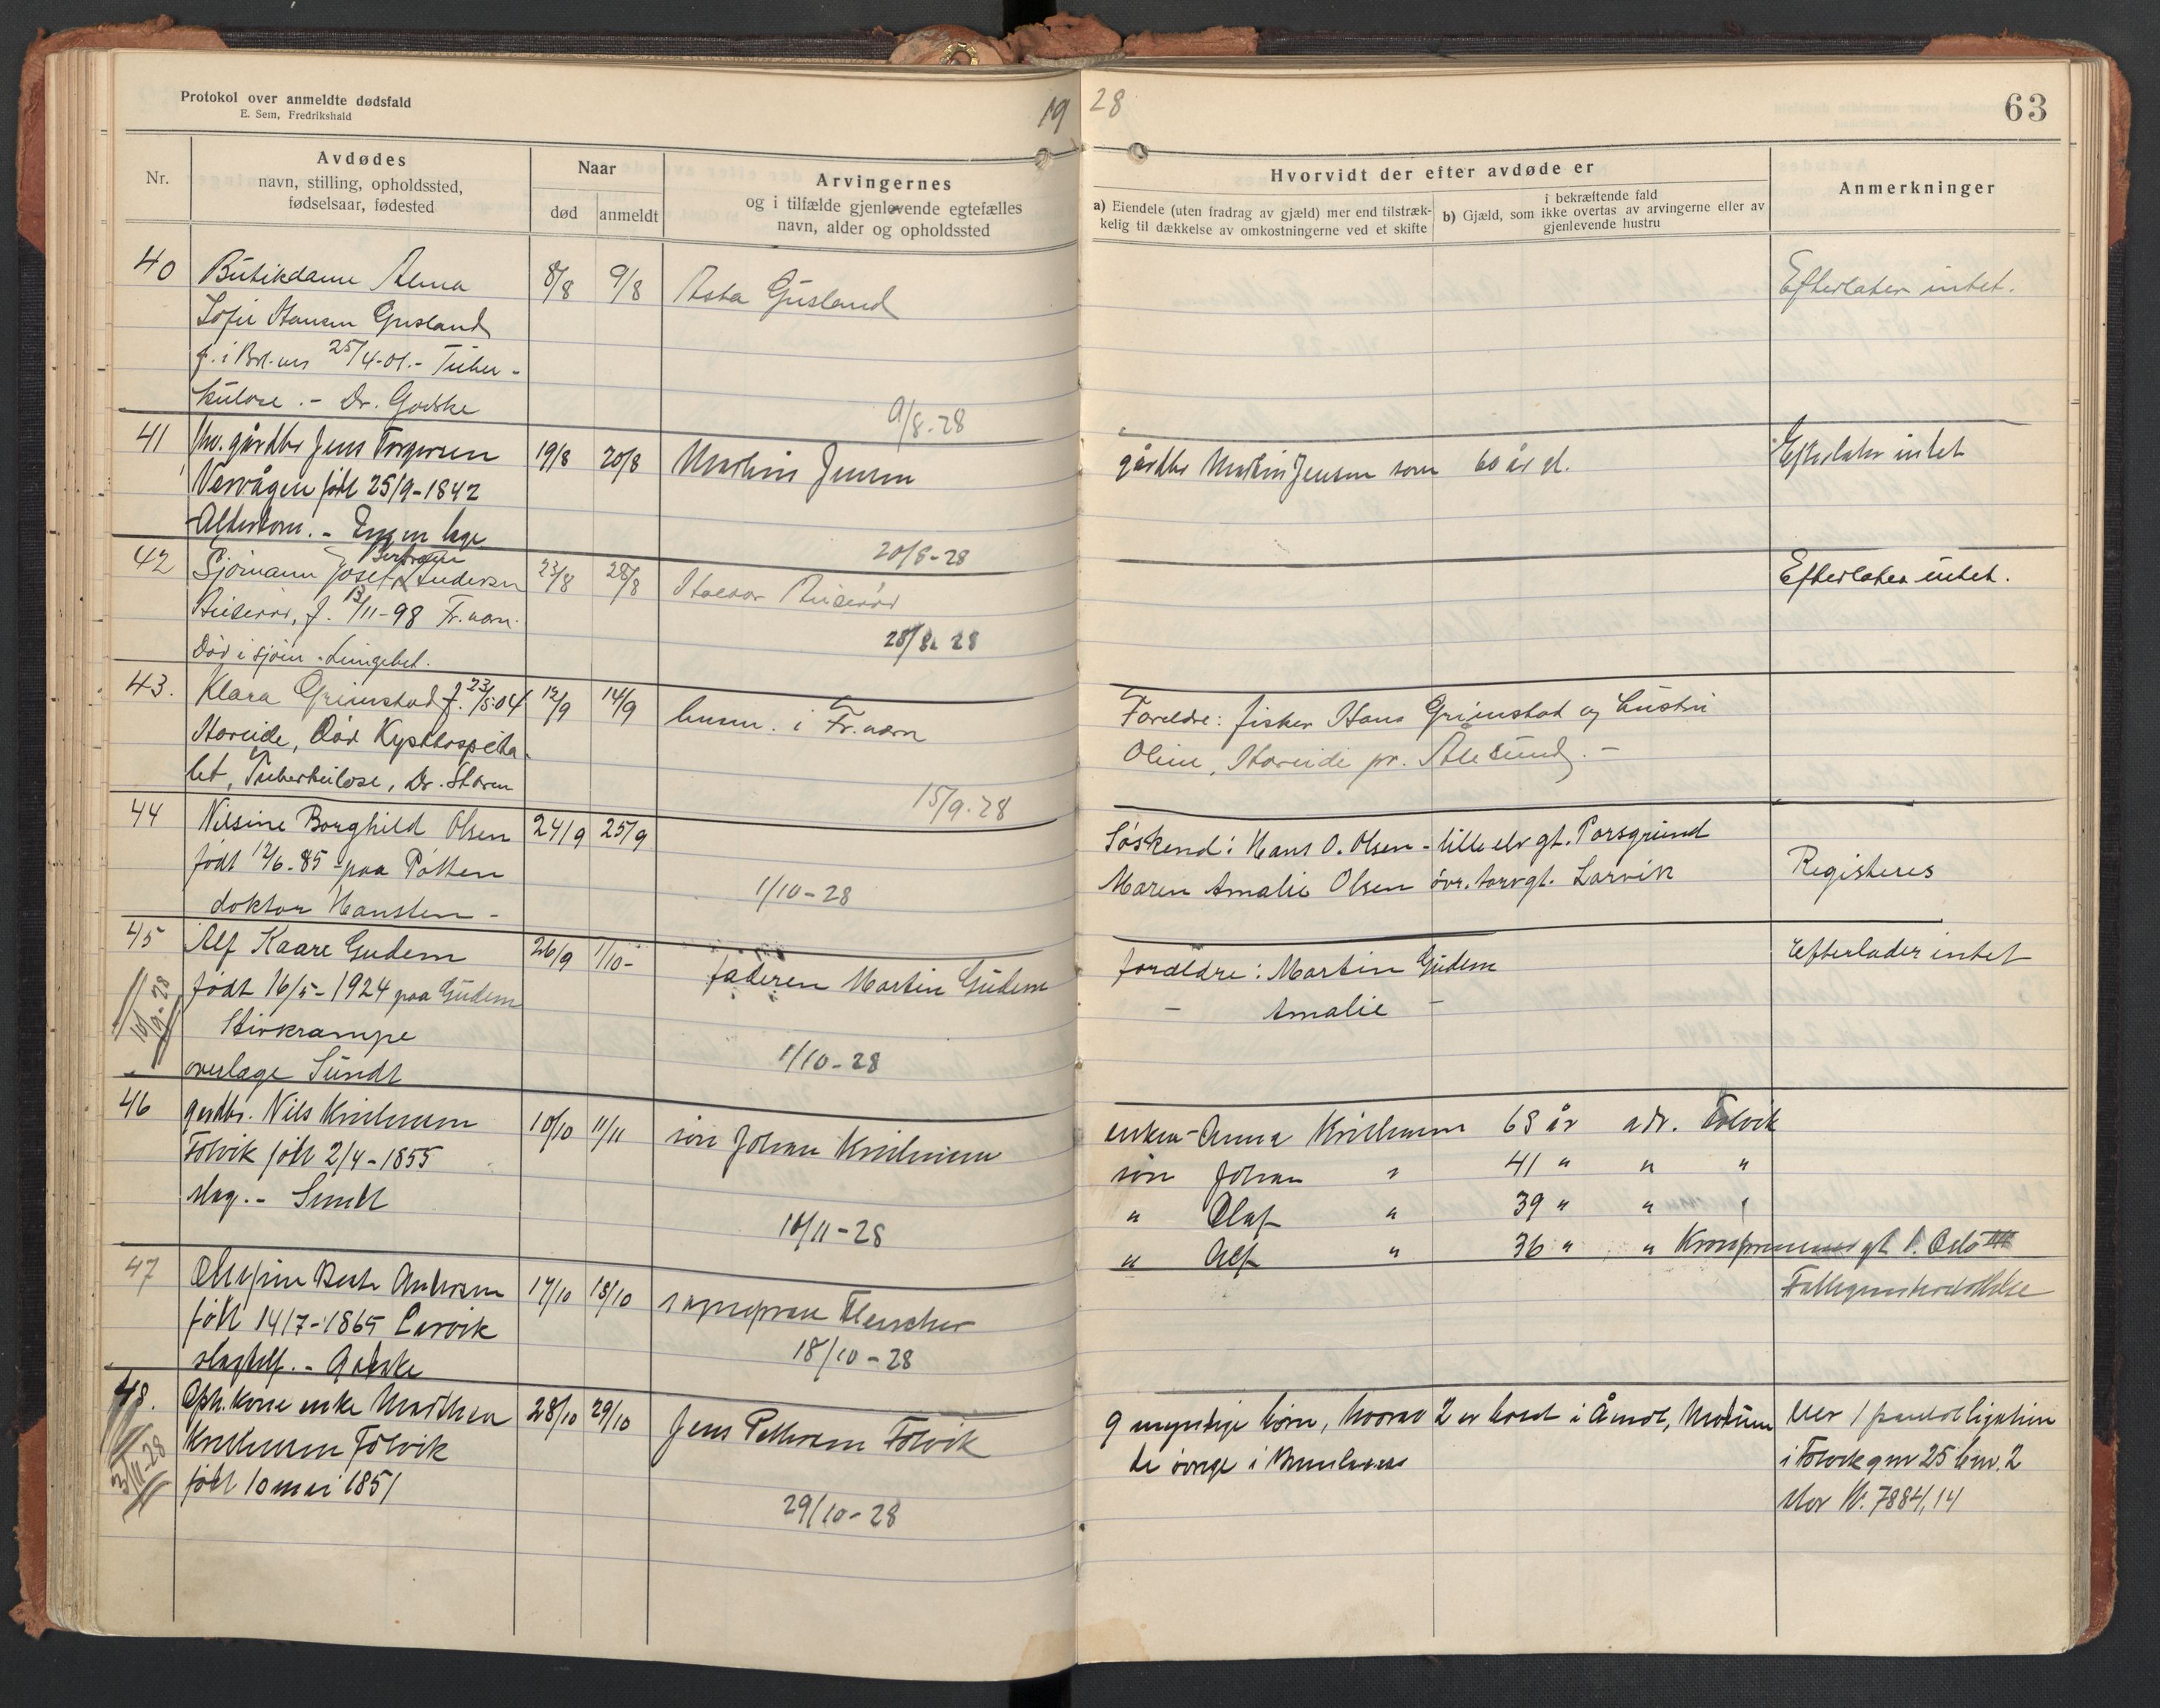 Protokol over anmeldte dødsfald
E. Sem, Fredrikshald
19 28
63
Nr.
Avdødes
navn, stilling, opholdssted,
fødselsaar, fødested
Naar
død
anmeldt
Arvingernes
og i tilfælde gjenlevende egtefælles
navn, alder og opholdssted
Hvorvidt der efter avdøde er
a) Eiendele (uten fradrag av gjæld) mer end tilstræk-
kelig til dækkelse av omkostningerne ved et skifte
i bekræftende fald
b) Gjæld, som ikke overtas av arvingerne eller av
gjenlevende hustru
Anmerkninger
40 Butikdame Alma 8/8 9/8 Asta Gusland Efterlater intet.
Sofie Hansen Gusland
f. i Brl.nes 25/4-01.- Tuber-
kulose .- Dr. Godske
9/8-28
41 fhv. gårdbr Jens Torgersen 19/8 20/8 Mathis Jensen gårdbr Mathis Jensen som 60 år gl. Efterlater intet
Nevvågen født 25/9-1842
Alderdom. - Ingen lege
20/8-28
42 Sjømann Josef Andersen 23/8 28/8 Efterlater intet.
f. 13/11-98 Fr.værn.
Død i sjøen
28/8. 28
43. Klara Grimstad f. 23/5.04 12/9 14/9 i Fr.værn Foreldre: fisker Hans Grimstad og hustru
Hareide, Død Kysthospita-
let, Tuberkulose, Dr. Støren
Oline, Hareide pr. Ålesund. -
15/9-28
44 Nilsine Borghild Olsen 24/9 25/9 Søskend: Hans O. Olsen - lille elv gt. Porsgrund
født 12/6-85 - paa Pøtten Maren Amalie Olsen øvr. torvgt. Larvik Registeres
doktor Hansten -
1/10-28
45 Alf Kaare Gudem 26/9 1/10- faderen Martin Gudem forældre: Martin Gudem Efterlader intet
født 16/5-1924 paa Gudem - Amalie -
10/9-28
Stivkrampe
overlæge Sundt
1/10-28
46 gardbr. Nils Kristensen 10/10 11/11 søn Johan Kristensen enken - Anna Kristensen 68 år adr. Tolvik
Tolvik født 2/4-1855 søn Johan " 41 " " "
slag. - Sundt " Olaf " 39 " " "
10/11-28
" Alf " 36 " " gt Oslo
47 Andersen 17/10 18/10
født 14/7-1865 Larvik
- Godske
18/10-28
48. enke Mathea 28/10 29/10 Jens Pettersen Tolvik 9 myndige børn, hvorav 2 er bosat i Åmot, Modum Eier 1 pantobligation
Kristensen Tolvik de øvrige i Brunlanes i Tolvik gnr 25 bnr. 2
født 10 mai 1851 stor Kr. 7884,14
3/11-28
29/10-28